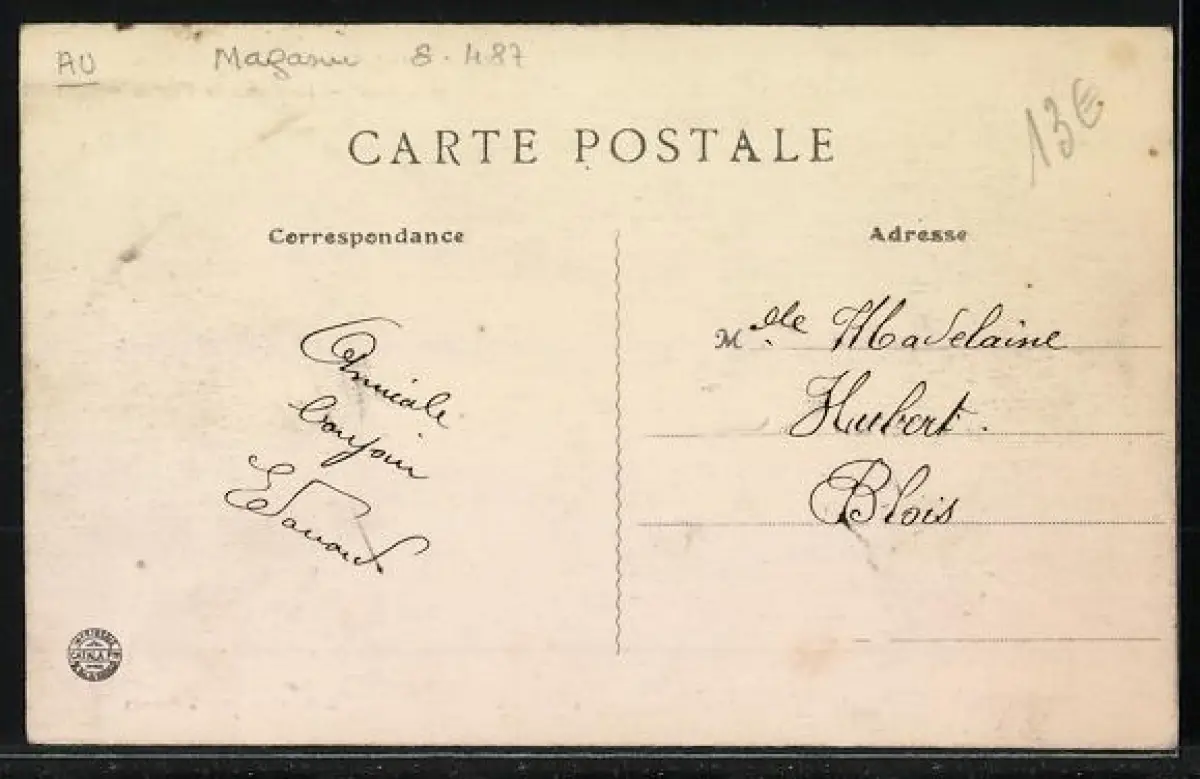 AU Magasin 8.487
13€
CARTE POSTALE
Correspondance
Adresse
Amicale
bonjour
Mlle Madelaine
Hubert.
Blois